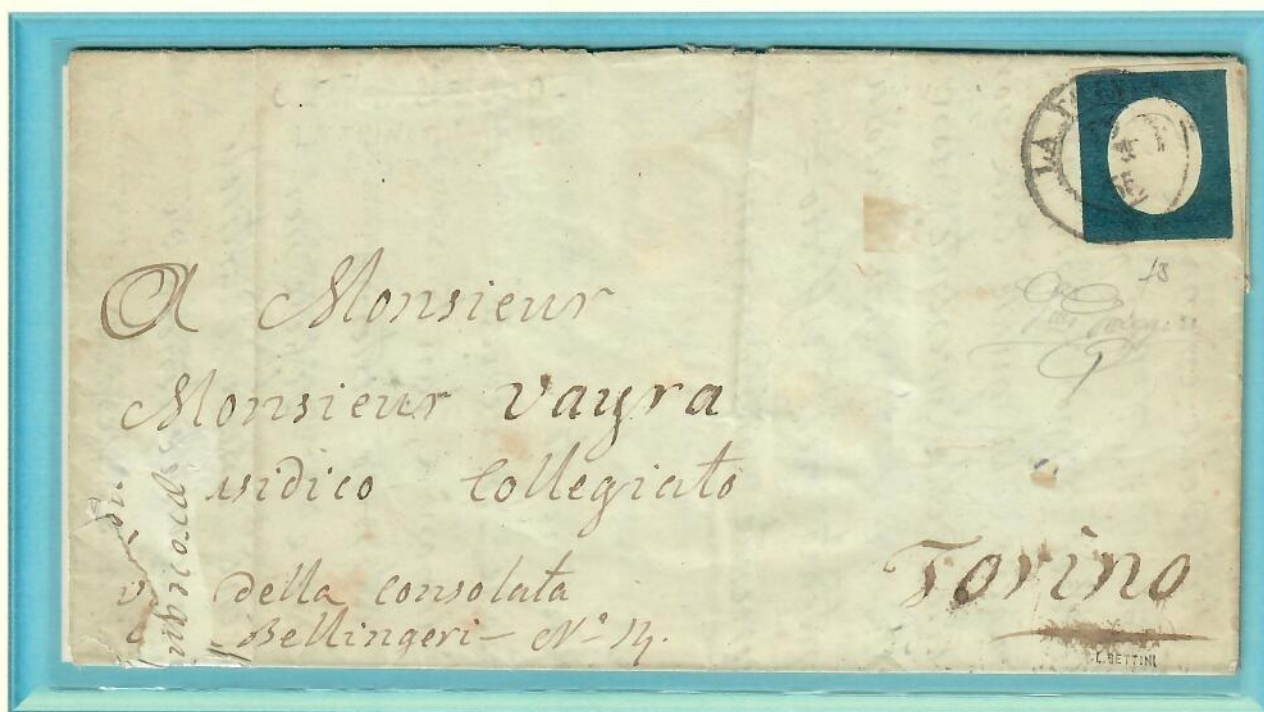 LA
18
A Monsieur
Monsieur Vayra
usidico Collegiato
della consolata
Bellingeri – N° 14.
Torino
L. BETTINI